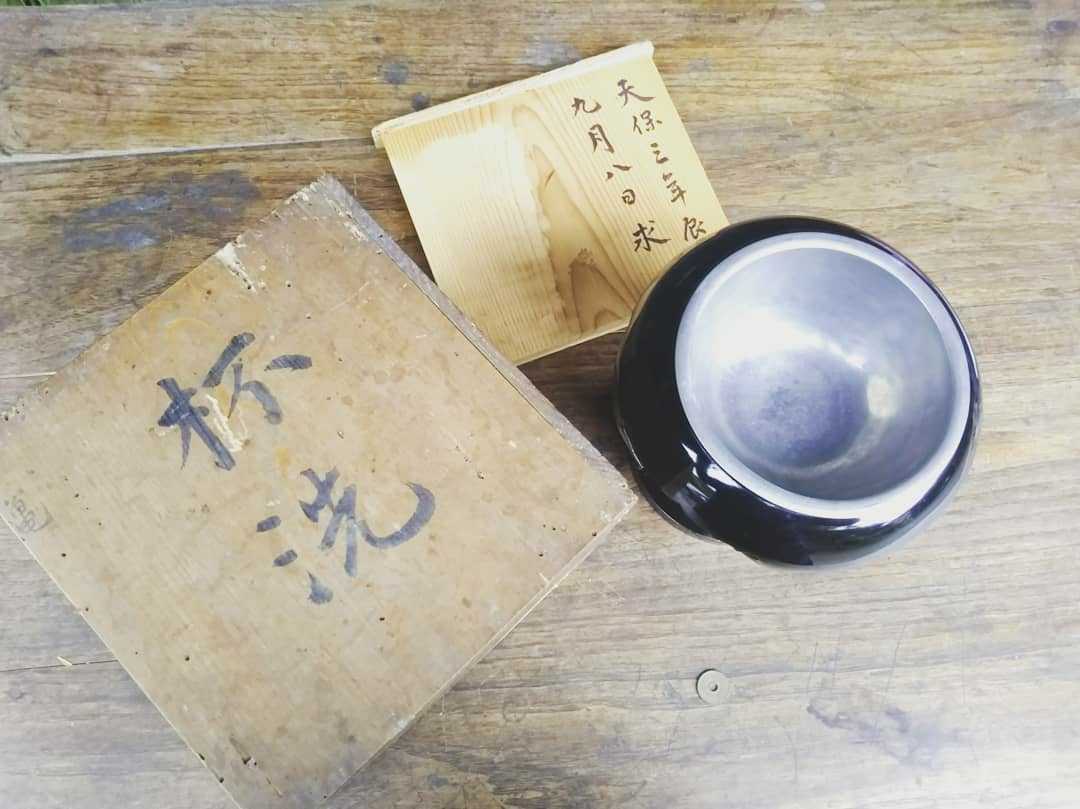 天保三年辰
九月八日求
杯洗